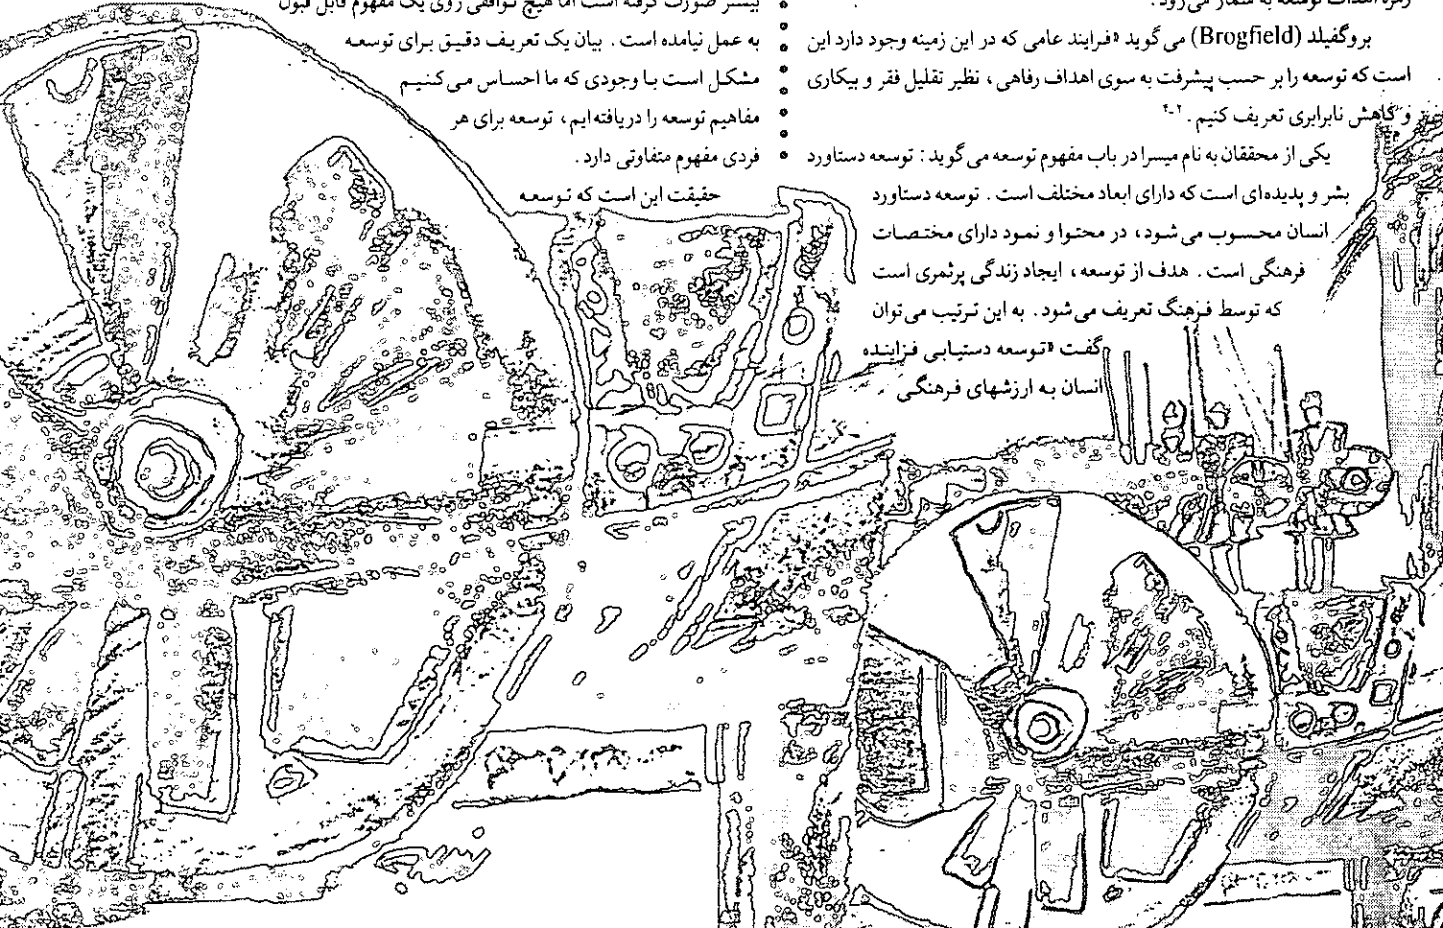 زمره اهداف توسعه به شمار می‌رود .
بروگفیلد (Brogfield) می‌گوید «فرایند عامی که در این زمینه وجود دارد این
است که توسعه را بر حسب پیشرفت به سوی اهداف رفاهی ، نظیر تقلیل فقر و بیکاری
و کاهش نابرابری تعریف کنیم . ۲-۴
یکی از محققان به نام میسرا در باب مفهوم توسعه می‌گوید : توسعه دستاورد
بشر و پدیده‌ای است که دارای ابعاد مختلف است . توسعه دستاورد
انسان محسوب می‌شود ، در محتوا و نمود دارای مختصات
فرهنگی است . هدف از توسعه ، ایجاد زندگی پرثمری است
که توسط فرهنگ تعریف می‌شود . به این ترتیب می‌توان
گفت «توسعه دستیابی فزاینده
انسان به ارزشهای فرهنگی
بیشتر صورت گرفته است اما هیچ توافقی روی یک مفهوم قابل قبول
به عمل نیامده است . بیان یک تعریف دقیق برای توسعه
مشکل است با وجودی که ما احساس می‌کنیم
مفاهیم توسعه را دریافته‌ایم ، توسعه برای هر
فردی مفهوم متفاوتی دارد .
حقیقت این است که توسعه